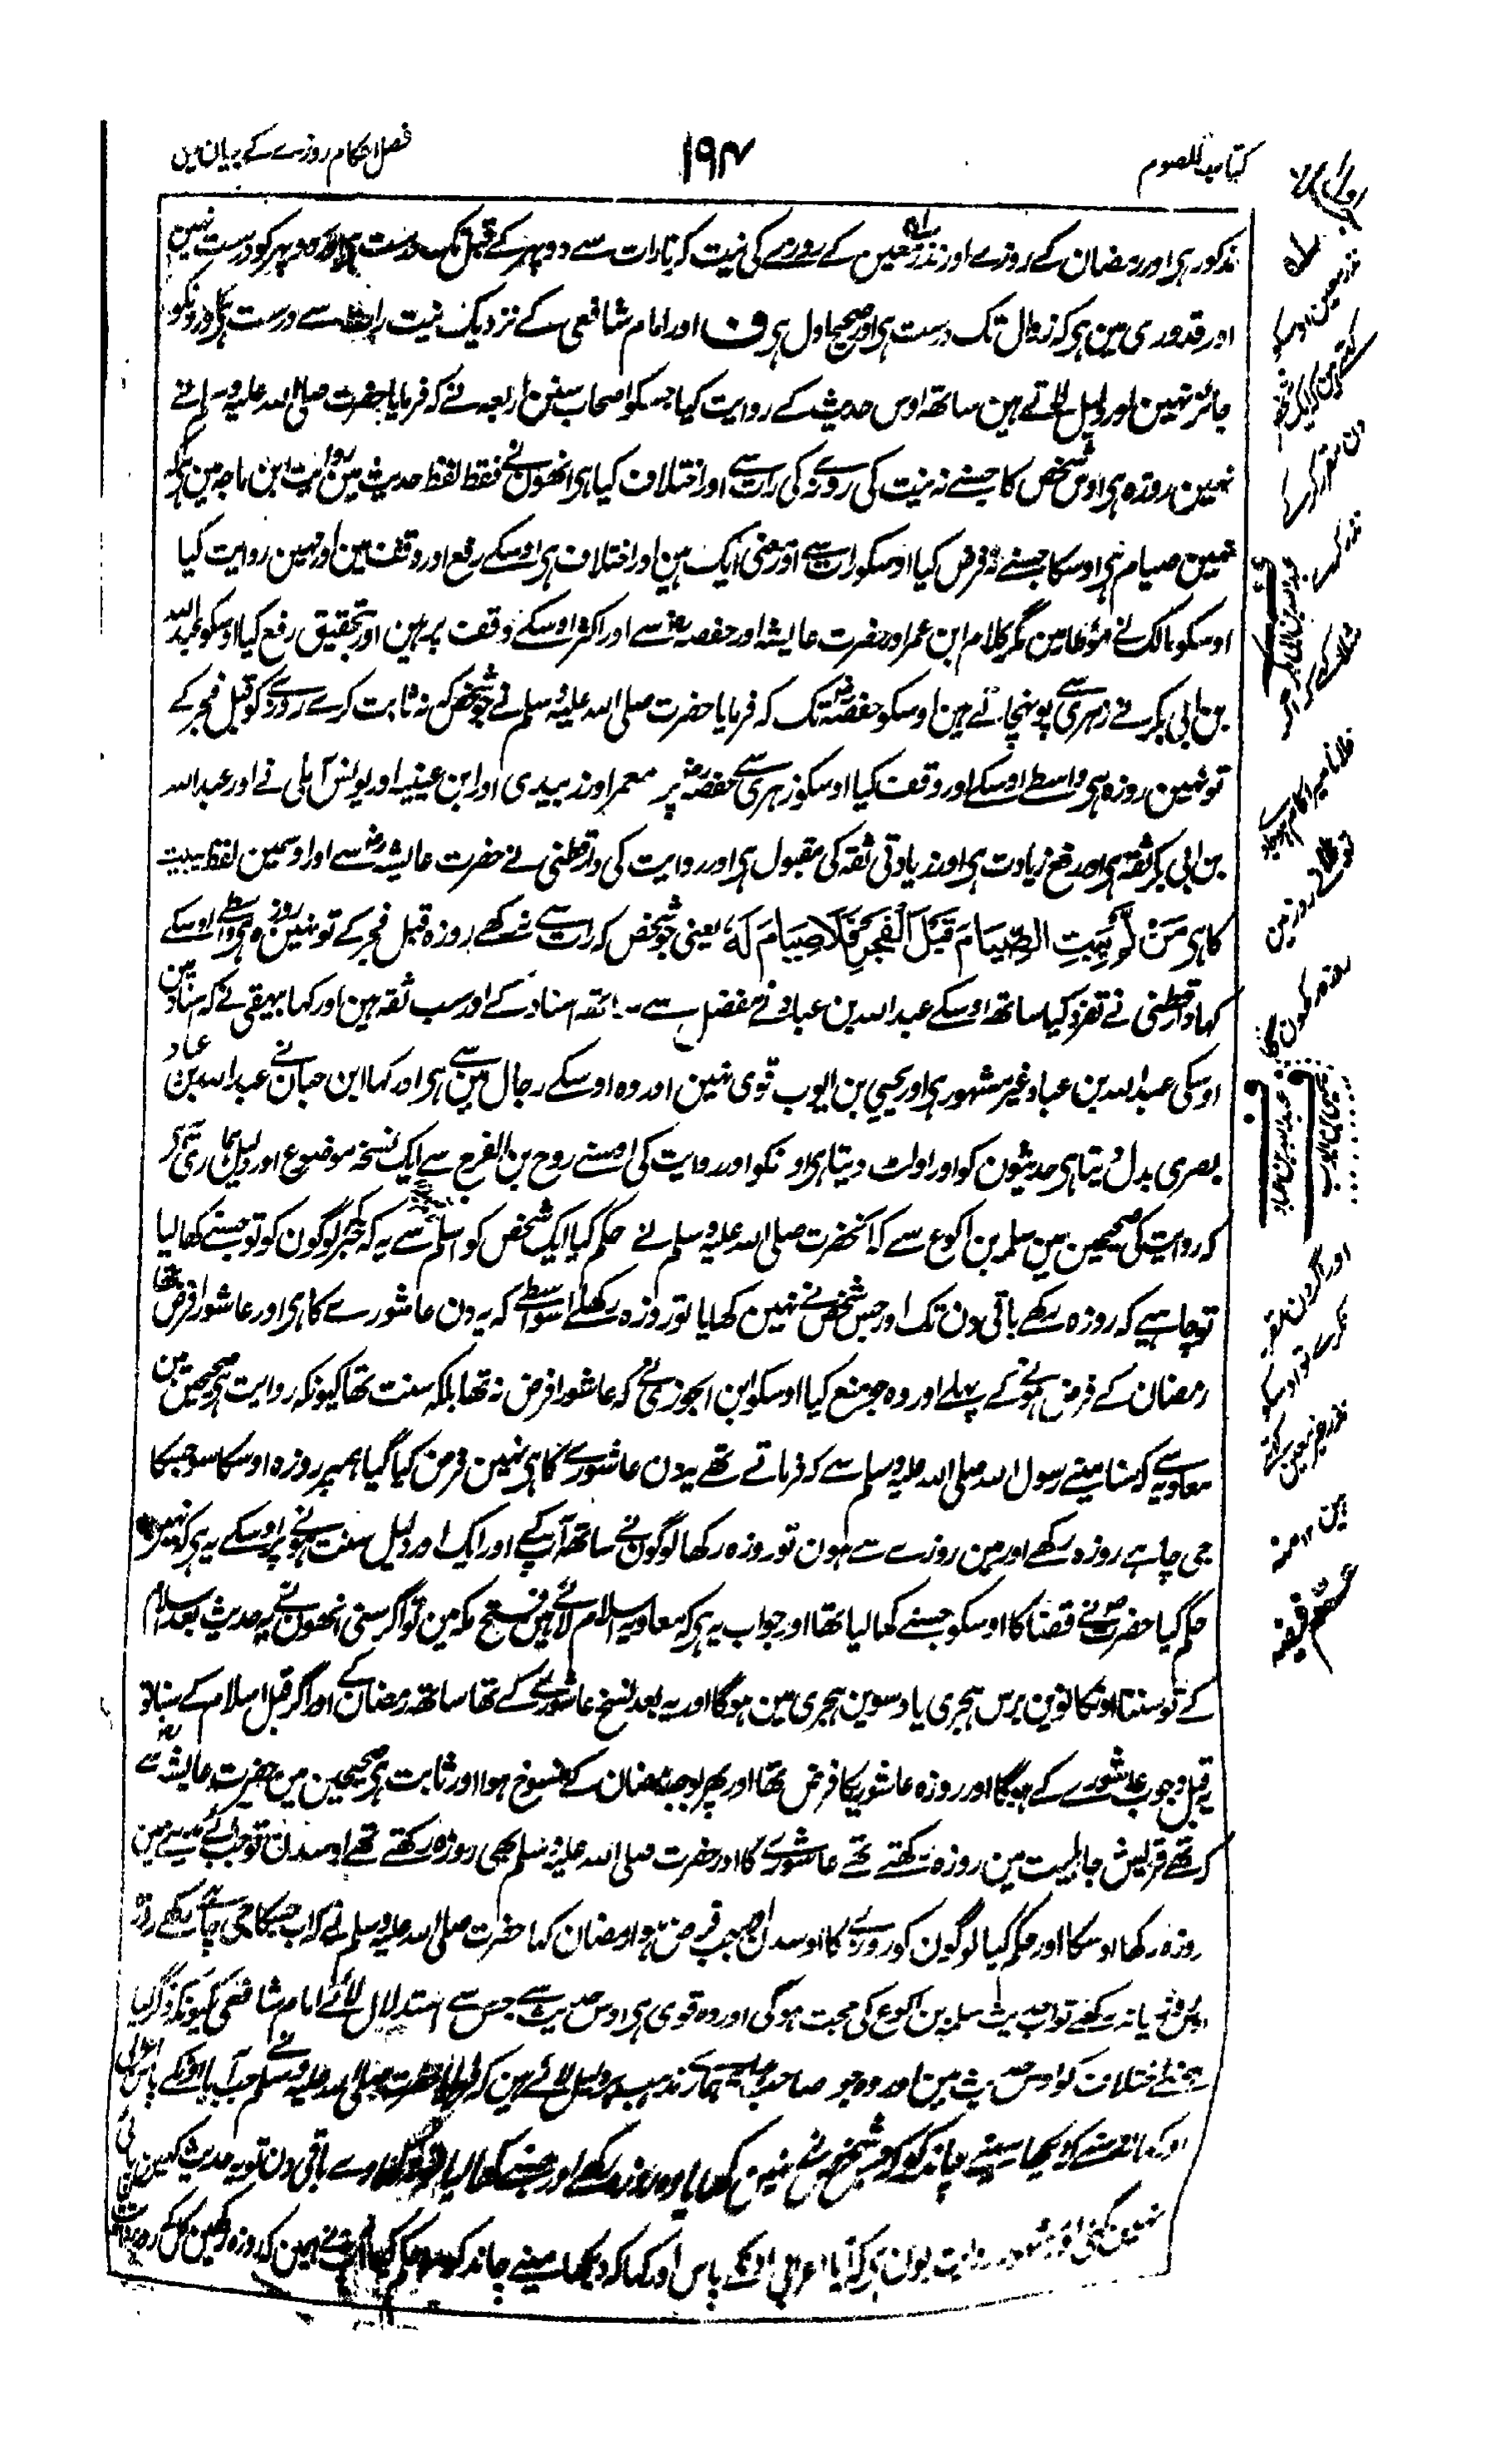 کتاب الصوم
۱۹۴
فصل احکام روزے کے بیان مین
مذکور ہی اور رمضان کے روزے اور نذر معین کے روزے کی نیت کرنا رات سے دوپہر کے قبل تک درست ہی اور دوپہر کو درست نہین
اور قدوری مین ہی کہ زوال تک درست ہی اور صحیح اول ہی ف اور امام شافعی کے نزدیک نیت رات سے درست ہی اور دنکو
جائز نہین اور دلیل لاتے ہین ساتھ اوس حدیث کے روایت کیا جسکو اصحاب سنن اربعہ نے کہ فرمایا حضرت صلی اللہ علیہ وسلم نے
نہین روزہ ہی اوس شخص کا جسنے نہ نیت کی روزے کی رات سے اور اختلاف کیا ہی انھون نے فقط لفظ حدیث مین روایت ابن ماجہ مین ہی کہ
نہین صیام ہی اوسکا جسنے نہ فرض کیا اوسکو رات سے اور معنی ایک ہین اور اختلاف ہی اوسکے رفع اور وقف مین اور نہین روایت کیا
اوسکو مالک نے مؤطا مین مگر کلام ابن عمر اور حضرت عایشہ اور حفصہ رض سے اور اکثر اوسکے وقف پر ہین اور تحقیق رفع کیا اوسکو عبد اللہ
بن ابی بکر نے زہری سے پونہچاتے ہین اوسکو حفصہ رض تک کہ فرمایا حضرت صلی اللہ علیہ وسلم نے جو شخص کہ نہ ثابت کرے روزے کو قبل فجر کے
تو نہین روزہ ہی واسطے اوسکے اور وقف کیا اوسکو زہری سے حفصہ رض پر معمر اور زبیدی اور ابن عیینہ اور یونس آبلی نے اور عبد اللہ
بن ابی بکر ثقہ ہی اور رفع زیادت ہی اور زیادتی ثقہ کی مقبول ہی اور روایت کی دارقطنی نے حضرت عایشہ رض سے اور اوسمین لفظ یبیت
کا ہی مَنْ لَّمْ یُبَیِّتِ الصِّیَامَ قَبْلَ الْفَجْرِ فَلَا صِیَامَ لَہٗ یعنی جو شخص کہ رات سے نرکھے روزہ قبل فجر کے تو نہین روزہ ہی واسطے اوسکے
کہا دارقطنی نے تفرد کیا ساتھ اوسکے عبد اللہ بن عباد نے مفضل سے اسناد کے اور سب ثقہ ہین اور کہا بیہقی نے کہ اسناد مین
اوسکی عبد اللہ بن عباد غیر مشہور ہی اور یحیی بن ایوب قوی نہین اور وہ اوسکے رجال مین سے ہی اور کہا ابن حبان نے عبد اللہ بن عباد
بصری بدل دیتا ہی حدیثون کو اور اولٹ دیتا ہی اونکو اور روایت کی اوسنے روح بن الفرج سے ایک نسخہ موضوع اور دلیل ہماری یہ ہی
کہ روایت کی صحیحین مین سلمہ بن اکوع سے کہ آنحضرت صلی اللہ علیہ وسلم نے حکم کیا ایک شخص کو اسلم سے یہ کہ خبر کر لوگون کو تو جسنے کھا لیا
تو چاہیے کہ روزہ رکھے باقی دن تک اور جس شخص نے نہین کھایا تو روزہ رکھے اسواسطے کہ یہ دن عاشورے کا ہی اور عاشورا فرض تھا
رمضان کے فرض ہونے کے پہلے اور وہ جو منع کیا اوسکو ابن الجوزی نے کہ عاشورا فرض نہ تھا بلکہ سنت تھا کیونکہ روایت ہی صحیحین مین
معاویہ سے کہ سنا مینے رسول اللہ صلی اللہ علیہ وسلم سے کہ فرماتے تھے یہ دن عاشورے کا ہی نہین فرض کیا گیا ہمپر روزہ اوسکا سو جسکا
جی چاہے روزہ رکھے اور مین روزے سے ہون تو روزہ رکھا لوگون نے ساتھ آپ کے اور ایک اور دلیل سنت ہونے پر اوسکے یہ ہی کہ نہین
حکم کیا حضرت نے قضا کا اوسکو جسنے کھا لیا تھا اور جواب یہ ہی کہ معاویہ اسلام لائے ہین فتح مکہ مین تو اگر سنی انھون نے یہ حدیث بعد اسلام
کے تو سننا اونکا نوین برس ہجری یا دسوین ہجری مین ہوگا اور یہ بعد نسخ عاشورے کے تھا ساتھ رمضان کے اور اگر قبل اسلام کے سنا تو
یہ قبل وجوب عاشورے کے ہوگا اور روزہ عاشوریکا فرض تھا اور پھر بوجہ رمضان کے منسوخ ہوا اور ثابت ہی صحیحین مین حضرت عایشہ رض سے
کہ تھے قریش جاہلیت مین روزہ رکھتے تھے عاشورے کا اور حضرت صلی اللہ علیہ وسلم بھی روزہ رکھتے تھے اوسدن تو جب آئے مدینے مین
روزہ رکھا اوسکا اور حکم کیا لوگون کو روزے کا اوسدن جب فرض ہوا رمضان کہا حضرت صلی اللہ علیہ وسلم نے کہ اب جسکا جی چاہے رکھے روزہ
یا نہ رکھے تو اب حدیث سلمہ بن اکوع کی حجت ہوگی اور وہ قوی ہی اوس حدیث سے جس سے استدلال لائے امام شافعی کیونکہ ذکر کیا
ہمنے اختلاف کو اوس حدیث مین اور وہ جو صاحب ہدایہ ہمارے مذہب پر دلیل لائے ہین کہ فرمایا حضرت صلی اللہ علیہ وسلم جب آیا اونکے پاس اعرابی
دیکھا مینے چاند کو کہ جس شخص نے نہین کھایا وہ روزہ رکھے اور جسنے کھا لیا باقی دن تو یہ حدیث کہین
روایت یون ہی کہ آیا اعرابی اونکے پاس اور کہا کہ دیکھا مینے چاند کو کہ روزہ رکھین
نذر معین اوسکو
کہتے ہین کہ ایک شخص
دن مقرر کرے
نذر کرے
فلانا میرا کام ہو جاوے
تو فلانے روز مین
روزہ رکھون گا
اور اگر دن مقرر
نکرے تو اوسکو
نذر غیر معین کہتے
ہین ۱۲ منہ
عم فیضہ